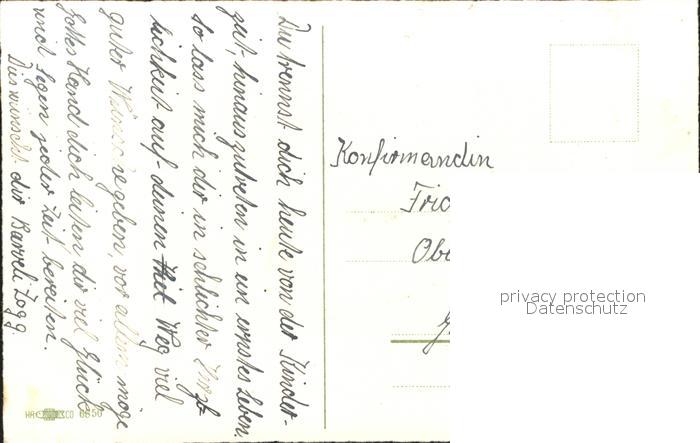 Du trennst dich heute von der Kinder-
zeit, hinauszutreten in ein ernstes Leben.
So lass mich dir in schlichter Herz
lichkeit auf deinen Weg viel
guter Wünsce gegeben, vor allem möge
Gottes Hand dich leiten dir viel Glück
und Segen jeder Zeit bereiten.
Dies wünscht dir Barveli Zogg.
Konfirmandin
Fric
Obe
privacy protection
Datenschutz
CO 6650